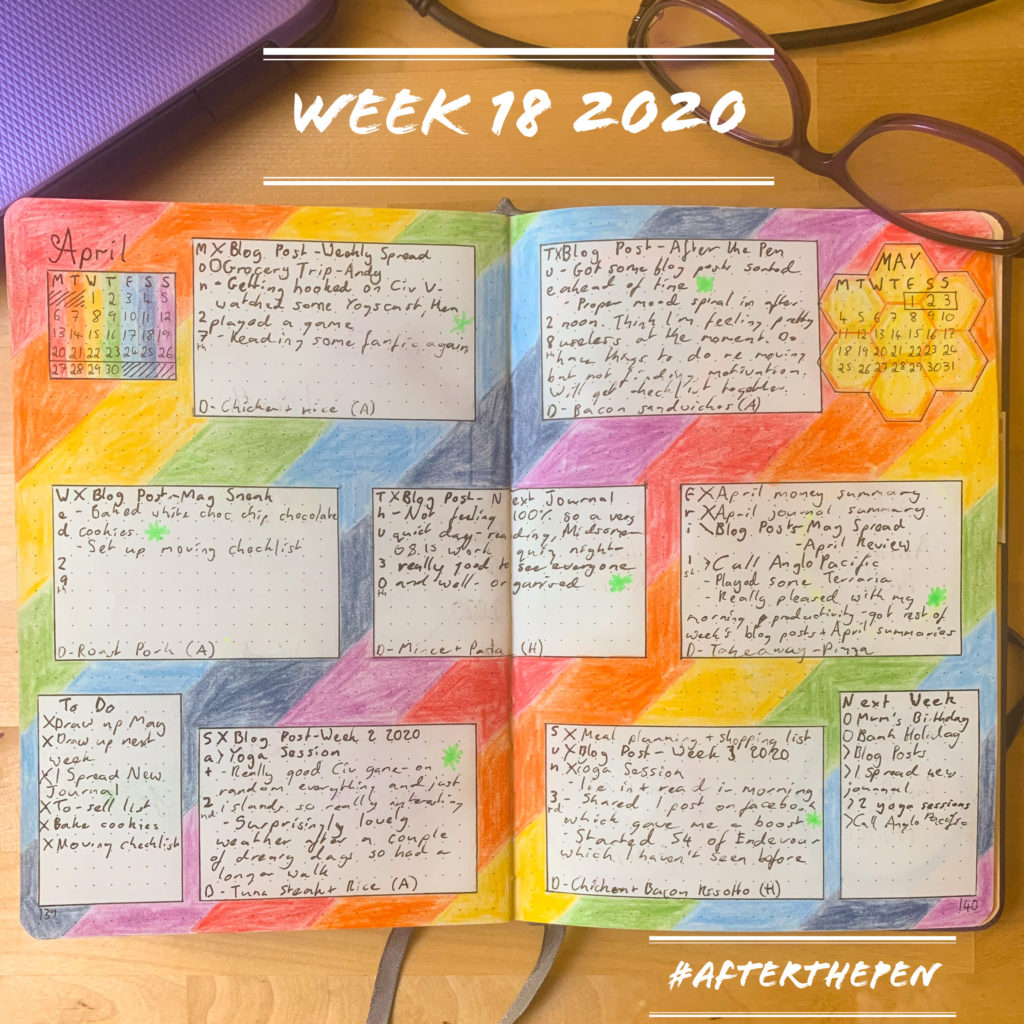 WEEK 18 2020
April
M T W T F S S
1 2 3 4 5
6 7 8 9 10 11 12
13 14 15 16 17 18 19
20 21 22 23 24 25 26
27 28 29 30
Mon 27th
X Blog Post - Weekly Spread
O Grocery Trip - Andy
- Getting hooked on Civ V -
watched some Yogscast, then
played a game
- Reading some fanfic again
D - Chicken + rice (A)
Tue 28th
X Blog Post - After the Pen
- Got some blog posts sorted
ahead of time
- Proper mood spiral in after
noon. Think I'm feeling pretty
useless at the moment. Do
have things to do re moving
but not finding motivation.
Will get checklist together.
D - Bacon sandwiches (A)
MAY
M T W T F S S
1 2 3
4 5 6 7 8 9 10
11 12 13 14 15 16 17
18 19 20 21 22 23 24
25 26 27 28 29 30 31
Wed 29th
X Blog Post - May Sneak
- Baked white choc chip chocolate
cookies.
- Set up moving checklist
D - Roast Pork (A)
Thu 30th
X Blog Post - Next Journal
- Not feeling 100% so a very
quiet day - reading, Midsomer
G8.15 work quiz night -
really good to see everyone
and well-organised
D - Mince + Pasta (H)
Fri 1st
X April money summary
X April journal summary
\ Blog Posts - May Spread
- April Review
> Call Anglo Pacific
- Played some Terraria
- Really pleased with my
morning productivity - got rest of
week's blog posts + April summaries
D - Takeaway - Pizza
To Do
X Draw up May
X Draw up next
week
X 1 Spread New
Journal
X To-sell list
X Bake cookies
X Moving checklist
Sat 2nd
X Blog Post - Week 2 2020
> Yoga Session
- Really good Civ game - on
random everything and just
islands so really interesting
- Surprisingly lovely
weather after a couple
of dreary days so had a
longer walk
D - Tuna Steak + Rice (A)
Sun 3rd
X Meal planning + shopping list
X Blog Post - Week 3 2020
X Yoga Session
- lie in + read in morning
- Shared 1 post on facebook
which gave me a boost
- Started S4 of Endeavour
which I haven't seen before
D - Chicken + Bacon Risotto (H)
Next Week
O Mum's Birthday
O Bank Holiday
> Blog Posts
> 1 Spread new
journal
> 2 yoga sessions
> Call Anglo Pacific
139
140
#AFTERTHEPEN